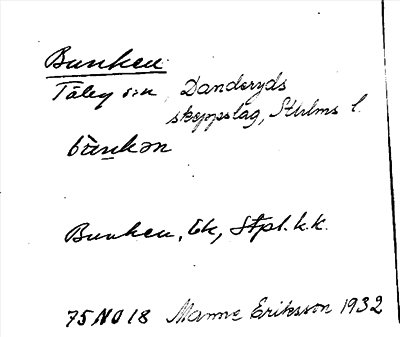 Bunken
Täby sn, Danderyds
skeppslag, Sthlms l.
bäŋkən
Bunken, Ek, Stpl. k.k.
75 NO 18 Manne Eriksson 1932